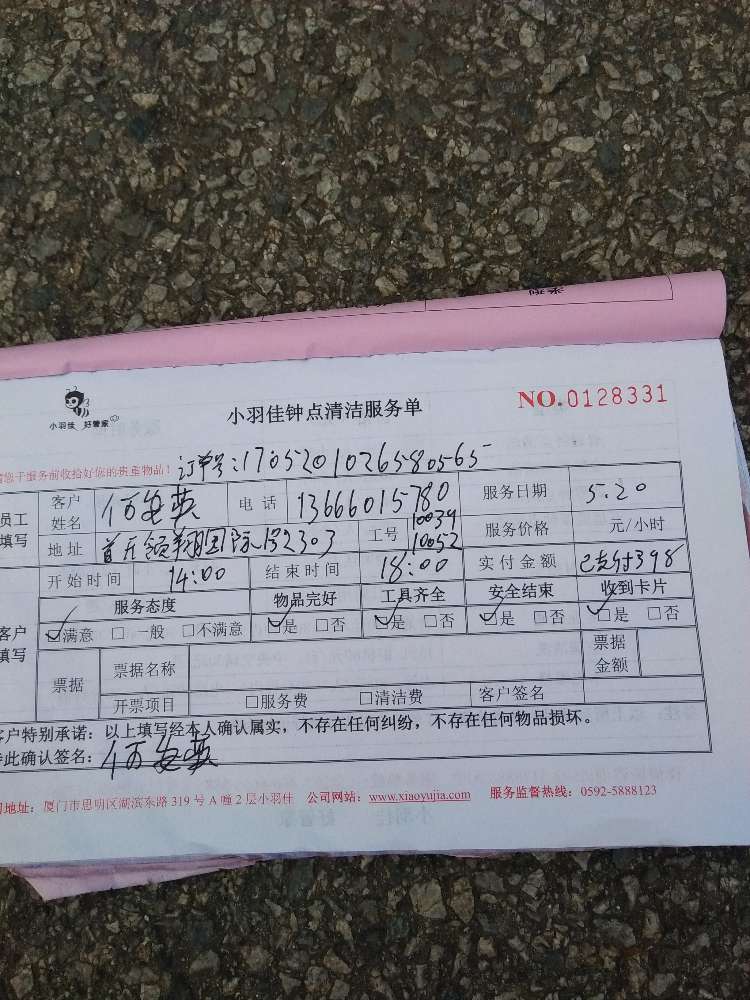 小羽佳 好管家
小羽佳钟点清洁服务单
NO.0128331
请您于服务前收拾好您的贵重物品!
订单号:1705201026580565
员工填写
客户姓名 电话 13666015780 服务日期 5.20
地址 首开领翔国际 2303 工号 10039 10052 服务价格 元/小时
开始时间 14:00 结束时间 18:00 实付金额 已支付398
客户填写
服务态度 物品完好 工具齐全 安全结束 收到卡片
☑满意 □一般 □不满意 ☑是 □否 ☑是 □否 ☑是 □否 ☑是 □否
票据 票据名称 票据金额
开票项目 □服务费 □清洁费 客户签名
客户特别承诺:以上填写经本人确认属实,不存在任何纠纷,不存在任何物品损坏。
特此确认签名:
司地址:厦门市思明区湖滨东路319号A幢2层小羽佳 公司网站:www.xiaoyujia.com 服务监督热线:0592-5888123